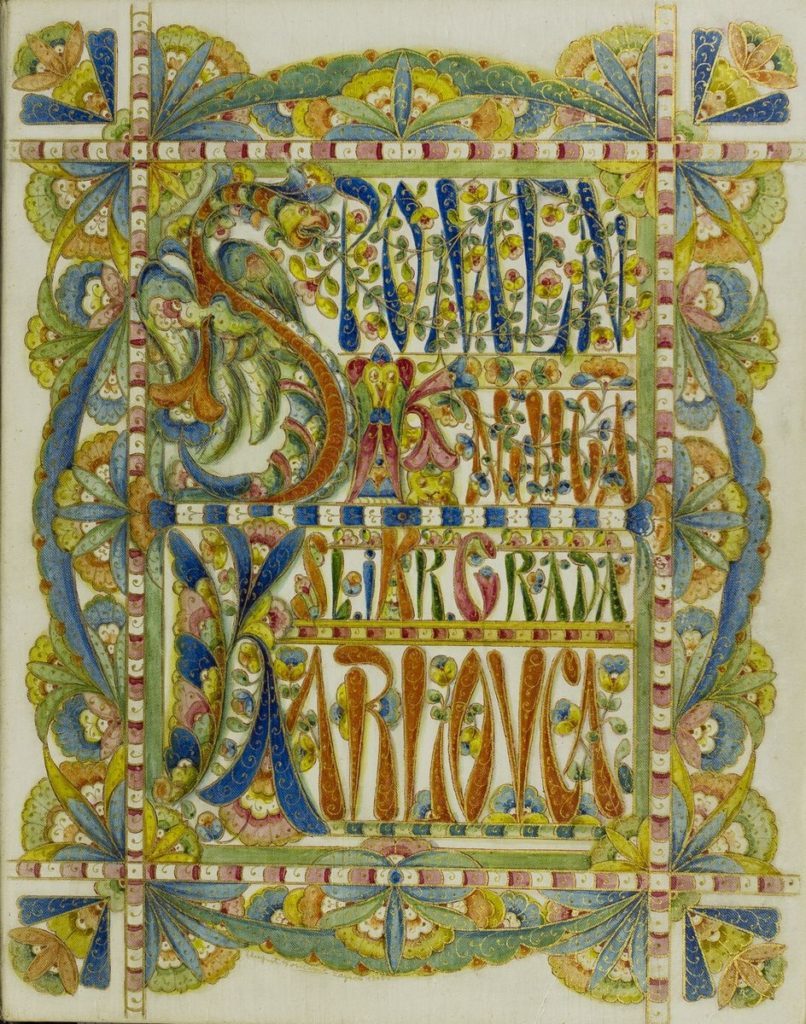 SPOMEN
KNJIGA
SL. i KR. GRADA
KARLOVCA